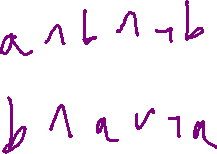 a ∧ b ∧ ¬ b
b ∧ a ∨ ¬ a